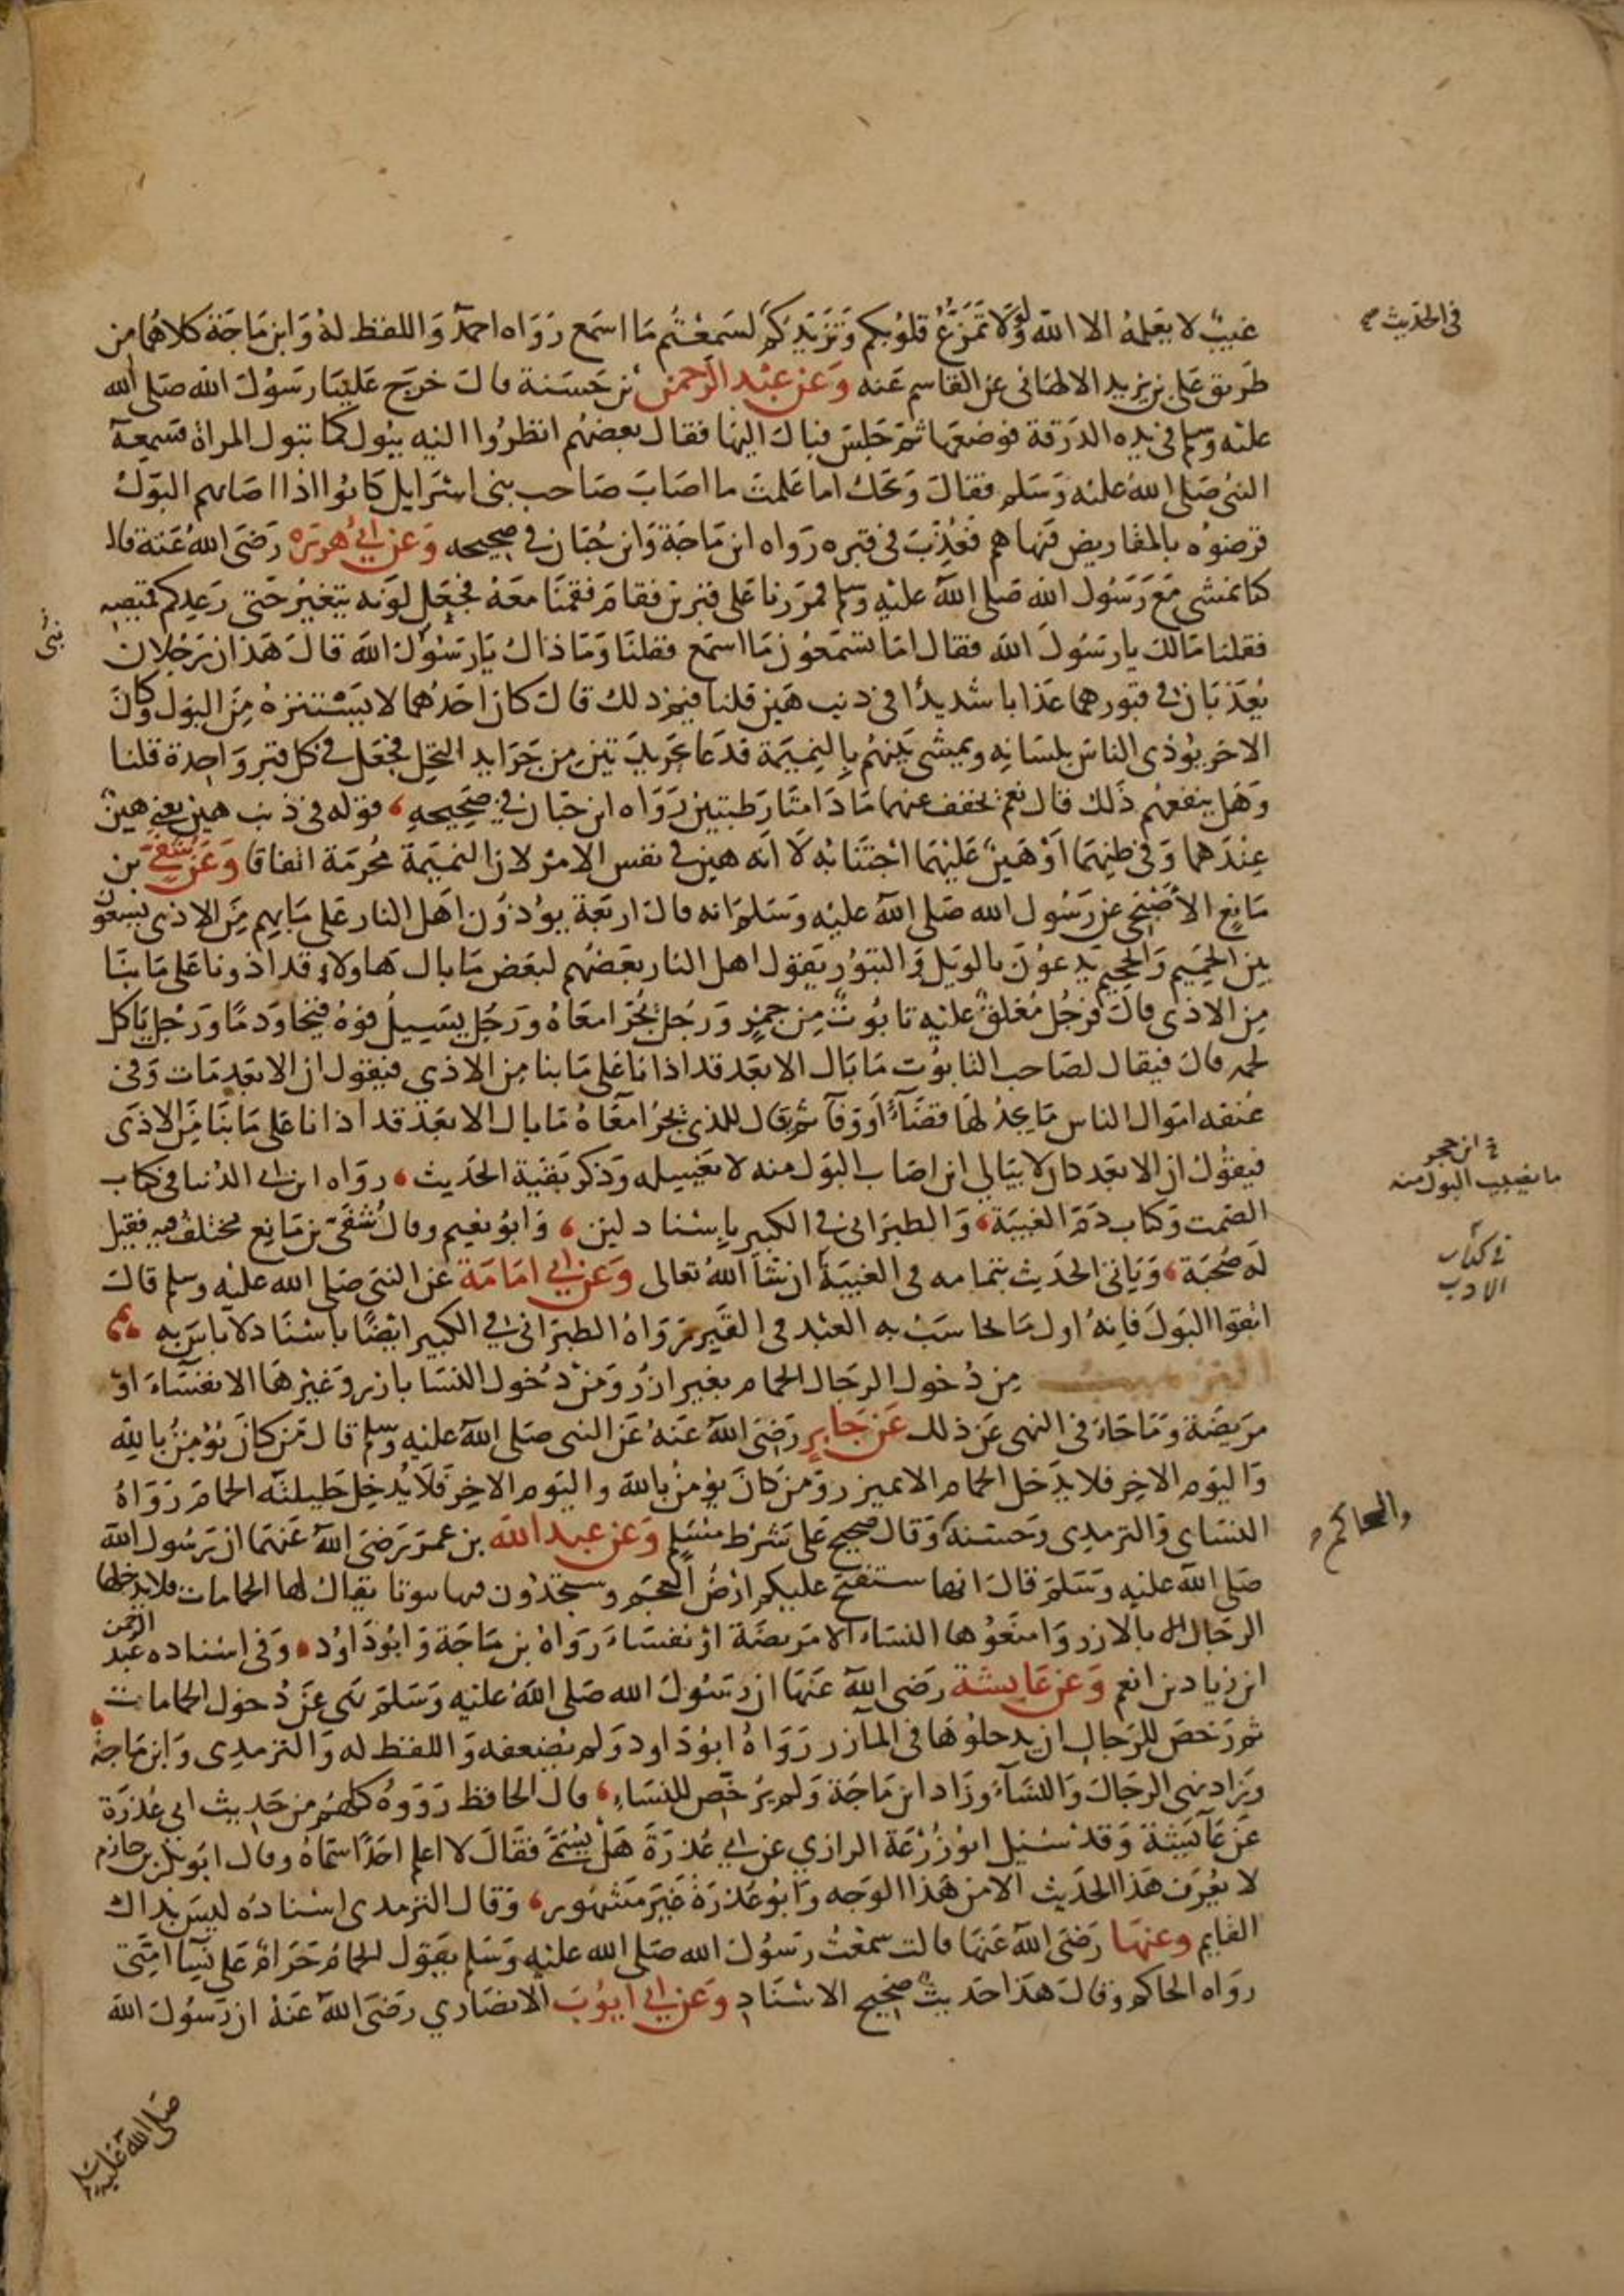 غيب لا يعلمه الا الله ولولا تمزع قلوبكم وتزيدكم لسمعتم ما اسمع رواه احمد واللفظ له وابن ماجة كلاهما من
في الحديث صح
طريق علي بن يزيد الالهاني عن القاسم عنه وعن عبد الرحمن بن حسنة قال خرج علينا رسول الله صلى الله
عليه وسلم في يده الدرقة فوضعها ثم جلس فبال اليها فقال بعضهم انظروا اليه يبول كما تبول المراة فسمعه
النبي صلى الله عليه وسلم فقال ويحك اما علمت ما اصاب صاحب بني اسرايل كانوا اذا اصابهم البول
قرضوه بالمقاريض فنهاهم فعذب في قبره رواه ابن ماجة وابن حبان في صحيحه وعن ابي هريره رضي الله عنه قال
كنا نمشي مع رسول الله صلى الله عليه وسلم فمررنا على قبرين فقام فقمنا معه فجعل لونه يتغير حتى رعد كم قميصه
فقلنا مالك يا رسول الله فقال اما تسمعون ما اسمع فقلنا وما ذاك يا رسول الله قال هذان رجلان
نبي
يعذبان في قبورهما عذابا شديدا في ذنب هين قلنا فيم ذلك قال كان احدهما لا يستنزه من البول وكان
الاخر يوذي الناس بلسانه ويمشي بينهم بالنميمة فدعا بجريدتين من جرايد النخل فجعل في كل قبر واحدة قلنا
وهل ينفعهم ذلك قال نعم يخفف عنهما ما دامتا رطبتين رواه ابن حبان في صحيحه قوله في ذنب هين يعني هين
عندهما وفي ظنهما او هين عليهما اجتنابه لا انه هين في نفس الامر لان النميمة محرمة اتفاقا وعن شفي بن
ماتع الاصبحي عن رسول الله صلى الله عليه وسلم انه قال اربعة يوذون اهل النار على ما بهم من الاذى يسعون
بين الحميم والجحيم يدعون بالويل والثبور يقول اهل النار بعضهم لبعض ما بال هاولاء قد اذونا على ما بنا
من الاذى قال فرجل مغلق عليه تابوت من جمر ورجل يجر امعاه ورجل يسيل فوه قيحا ودما ورجل ياكل
لحمه قال فيقال لصاحب التابوت ما بال الابعد قد اذانا على ما بنا من الاذى فيقول ان الابعد مات وفي
عنقه اموال الناس ما يجد لها قضاء او وفآ ثم يقال للذي يجر امعاه ما بال الابعد قد اذانا على ما بنا من الاذى
فيقول ان الابعد كان لا يبالي اين اصاب البول منه لا يغسله وذكر بقية الحديث رواه ابن ابي الدنيا في كتاب
الصمت وكتاب ذم الغيبة والطبراني في الكبير باسناد لين وابو نعيم وقال شفي بن ماتع مختلف فيه فقيل
له صحبة وياتي الحديث بتمامه في الغيبة ان شا الله تعالى وعن ابي امامة عن النبي صلى الله عليه وسلم قال
في كتاب
الادب
اتقوا البول فانه اول ما يحاسب به العبد في القبر رواه الطبراني في الكبير ايضا باسناد لا باس به
الترهيب من دخول الرجال الحمام بغير ازر ومن دخول النسا بازر وغيرها الا نفساء او
مريضة وما جاء في النهي عن ذلك عن جابر رضي الله عنه عن النبي صلى الله عليه وسلم قال من كان يؤمن بالله
واليوم الاخر فلا يدخل الحمام الا بميزر ومن كان يؤمن بالله واليوم الاخر فلا يدخل حليلته الحمام رواه
النساي والترمذي وحسنه وقال صحيح على شرط مسلم وعن عبد الله بن عمر رضي الله عنهما ان رسول الله
والحاكم
صلى الله عليه وسلم قال انها ستفتح عليكم ارض العجم وستجدون فيها بيوتا يقال لها الحمامات فلا يدخلها
الرجال الا بالازر وامنعوها النساء الا مريضة او نفساء رواه بن ماجة وابو داود وفي اسناده عبد الرحمن
ابن زياد بن انعم وعن عايشة رضي الله عنها ان رسول الله صلى الله عليه وسلم نهى عن دخول الحمامات
ثم رخص للرجال ان يدخلوها في المآزر رواه ابو داود ولم يضعفه واللفظ له والترمذي وابن ماجة
وزاد نهى الرجال والنساء وزاد ابن ماجة ولم يرخص للنساء قال الحافظ رووه كلهم من حديث ابي عذرة
عن عايشة وقد سئل ابو زرعة الرازي عن ابي عذرة هل يسمى فقال لا اعلم احدا سماه وقال ابو بكر بن حازم
لا يعرف هذا الحديث الا من هذا الوجه وابو عذرة غير مشهور وقال الترمذي اسناده ليس بذاك
القايم وعنها رضي الله عنها قالت سمعت رسول الله صلى الله عليه وسلم يقول الحمام حرام على نسا امتي
رواه الحاكم وقال هذا حديث صحيح الاسناد وعن ابي ايوب الانصاري رضي الله عنه ان رسول الله
صلى الله عليه وسلم